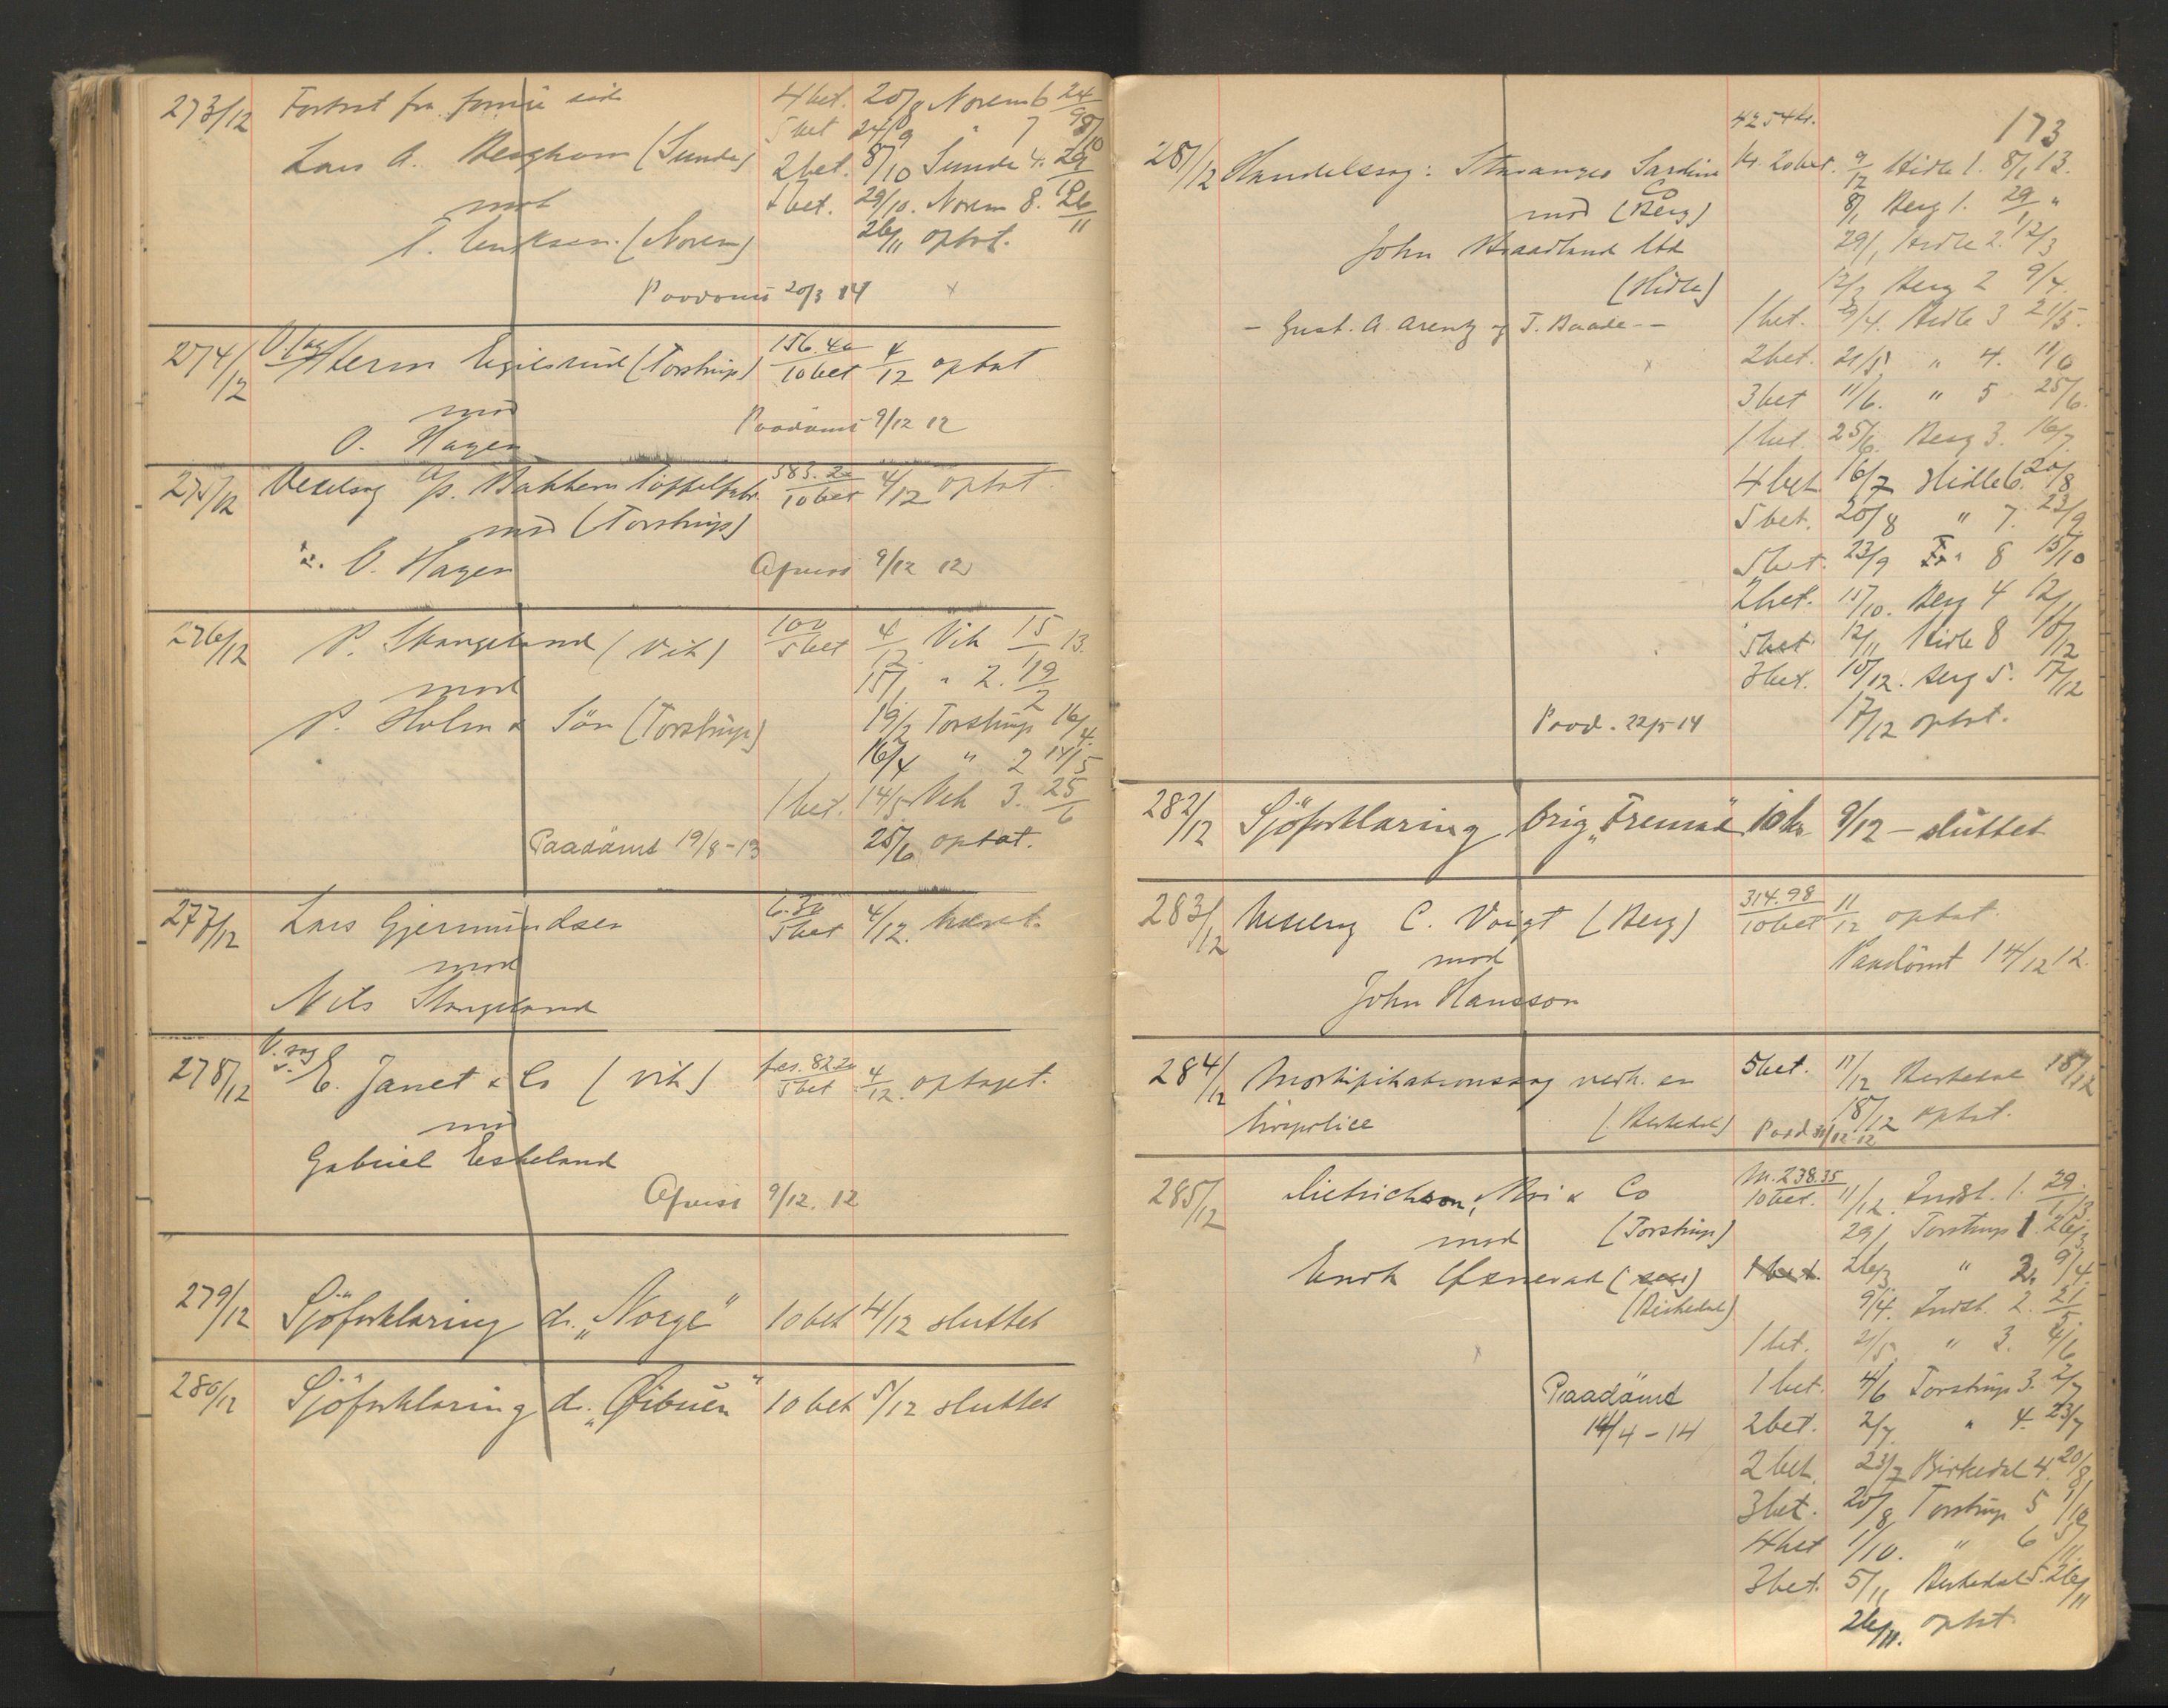 273/12 Fortsat fra forrige side 4 bet. 20/8 Norem 6 24/9
5 bet 24/9 " 7 8/10
Lars A. (Sunde) 2 bet. 8/10 Sunde 4. 29/10
mod 1 bet. 29/10. Norem 8. 26/11
T. Eriksen. (Norem) 26/11 optat.
Paadömt 20/3 14 x
274/12 V. sag Herm (Torstrup) 156.40 10 bet 4/12 optat
mod
O. Hagen Paadömt 9/12 12
275/12 Vexelsag A/S. 583.20 10 bet 4/12 optat.
mod (Torstrup)
O. Hagen Afvist 9/12 12
276/12 P. Skangeland (Vik) 100 5 bet 4/12 Vik 15/1 13.
mod 15/1 " 2. 19/2
P. Holm & Sön (Torstrup) 19/2 Torstrup 16/4.
16/4 " 2 14/5
1 bet. 14/5 Vik 3. 25/6
Paadömt 19/8-13 25/6 optat.
277/12 Lars Gjermundsen 6.30 5 bet 4/12. hævet.
mod
Nils Skangeland
278/12 V. sag E. Janet & Co (Vik) fcs. 82.20 5 bet 4/12. optaget.
mod
Gabriel Eskeland
Afvist 9/12. 12
279/12 Sjöforklaring ds. „Norge" 10 bet 4/12 sluttet
280/12 Sjöforklaring ds. „Öibuen" 10 bet 5/12 sluttet
173
4254 kr.
281/12 Handelssag: Stavanger Sardine Co kr. 20 bet. 9/12 Hidle 1. 8/1 13.
mod (Berg) 8/1 Berg 1. 29/1 "
John Braadland Ltd 29/1 Hidle 2. 12/3
(Hidle) 12/3 Berg 2 9/4.
- Gust. A. Arentz og T. Baade - - 1 bet. 9/4. Hidle 3 21/5.
x 2 bet. 21/5 " 4. 11/6
3 bet 11/6. " 5 25/6.
1 bet. 25/6. Berg 3. 16/7.
4 bet 16/7 Hidle 6. 20/8
5 bet. 20/8 " 7. 23/9
5 bet. 23/9 " 8 15/10
2 bet. 15/10. Berg 4 12/11
5 bet. 12/11 Hidle 8 10/12
3 bet. 10/12. Berg 5. 17/12
Paad. 22/5 14 17/12 optat.
282/12 Sjöforklaring brig „Fremad" 10 kr 9/12 - sluttet
283/12 Vexelsag C. Voigt (Berg) 314.98 10 bet 11/12 optat.
mod Paadömt 14/12 12.
John Hansson
284/12 Mortifikationssag vedk. en 5 bet. 11/12 Birkedal 18/12
livspolice (Birkedal) Paad 31/12-12 18/12 optat.
285/12 Dietrichson, & Co M. 238.35 10 bet. 11/12. Indst. 1. 29/1 13
mod (Torstrup) 29/1 Torstrup 1. 26/3
Endr. (selv) 1 bet. 26/3 " 2. 9/4.
(Birkedal) 9/4. Indst. 2. 21/5.
1 bet. 21/5. " 3. 4/6
x
Paadömt 1 bet. 4/6 Torstrup 3. 2/7
14/4-14 2 bet. 2/7. " 4. 23/7
2 bet. 23/7 Birkedal 4. 20/8
3 bet. 20/8 Torstrup 5 1/10
4 bet 1/10. " 6 5/11.
3 bet. 5/11 Birkedal 5. 26/11
26/11. optat.